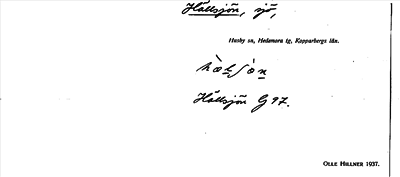 Hållsjön, sjö,
Husby sn, Hedemora tg, Kopparbergs län.
Hållsjön G 97.
OLLE HILLNER 1937.